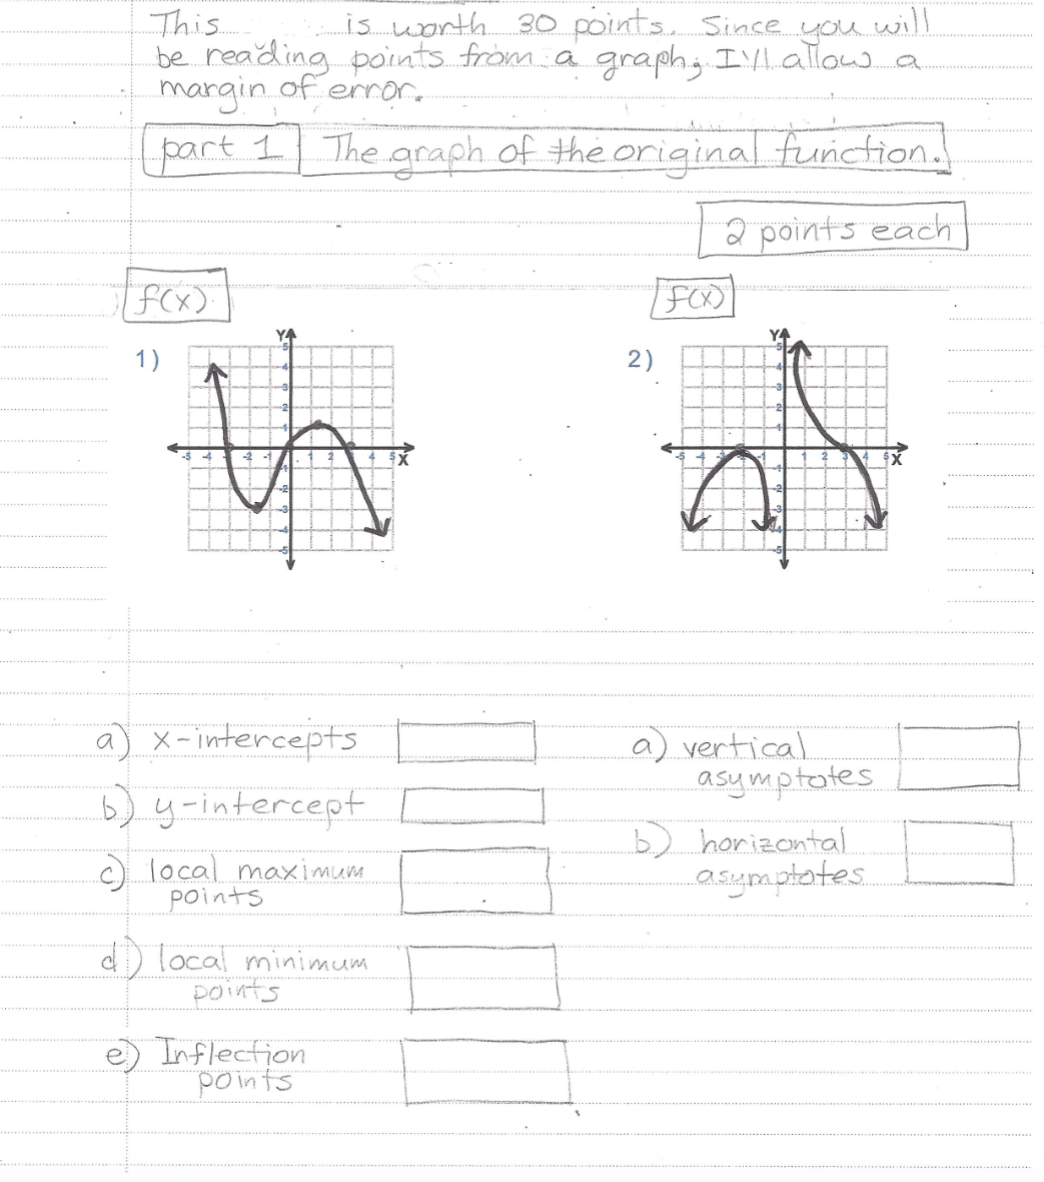 This is worth 30 points. Since you will
be reading points from a graph, I'll allow a
margin of error.
part 1 The graph of the original function.
2 points each
f(x)
f(x)
1)
2)
Y
5
4
3
2
1
-5 -4 -2 -1 1 2 4 5 X
-1
-2
-3
-4
-5
Y
5
4
2
1
-5 -1 1 2 3 4 5 X
-1
-2
-3
-4
-5
a) x-intercepts
b) y-intercept
c) local maximum
points
d) local minimum
points
e) Inflection
points
a) vertical
asymptotes
b) horizontal
asymptotes